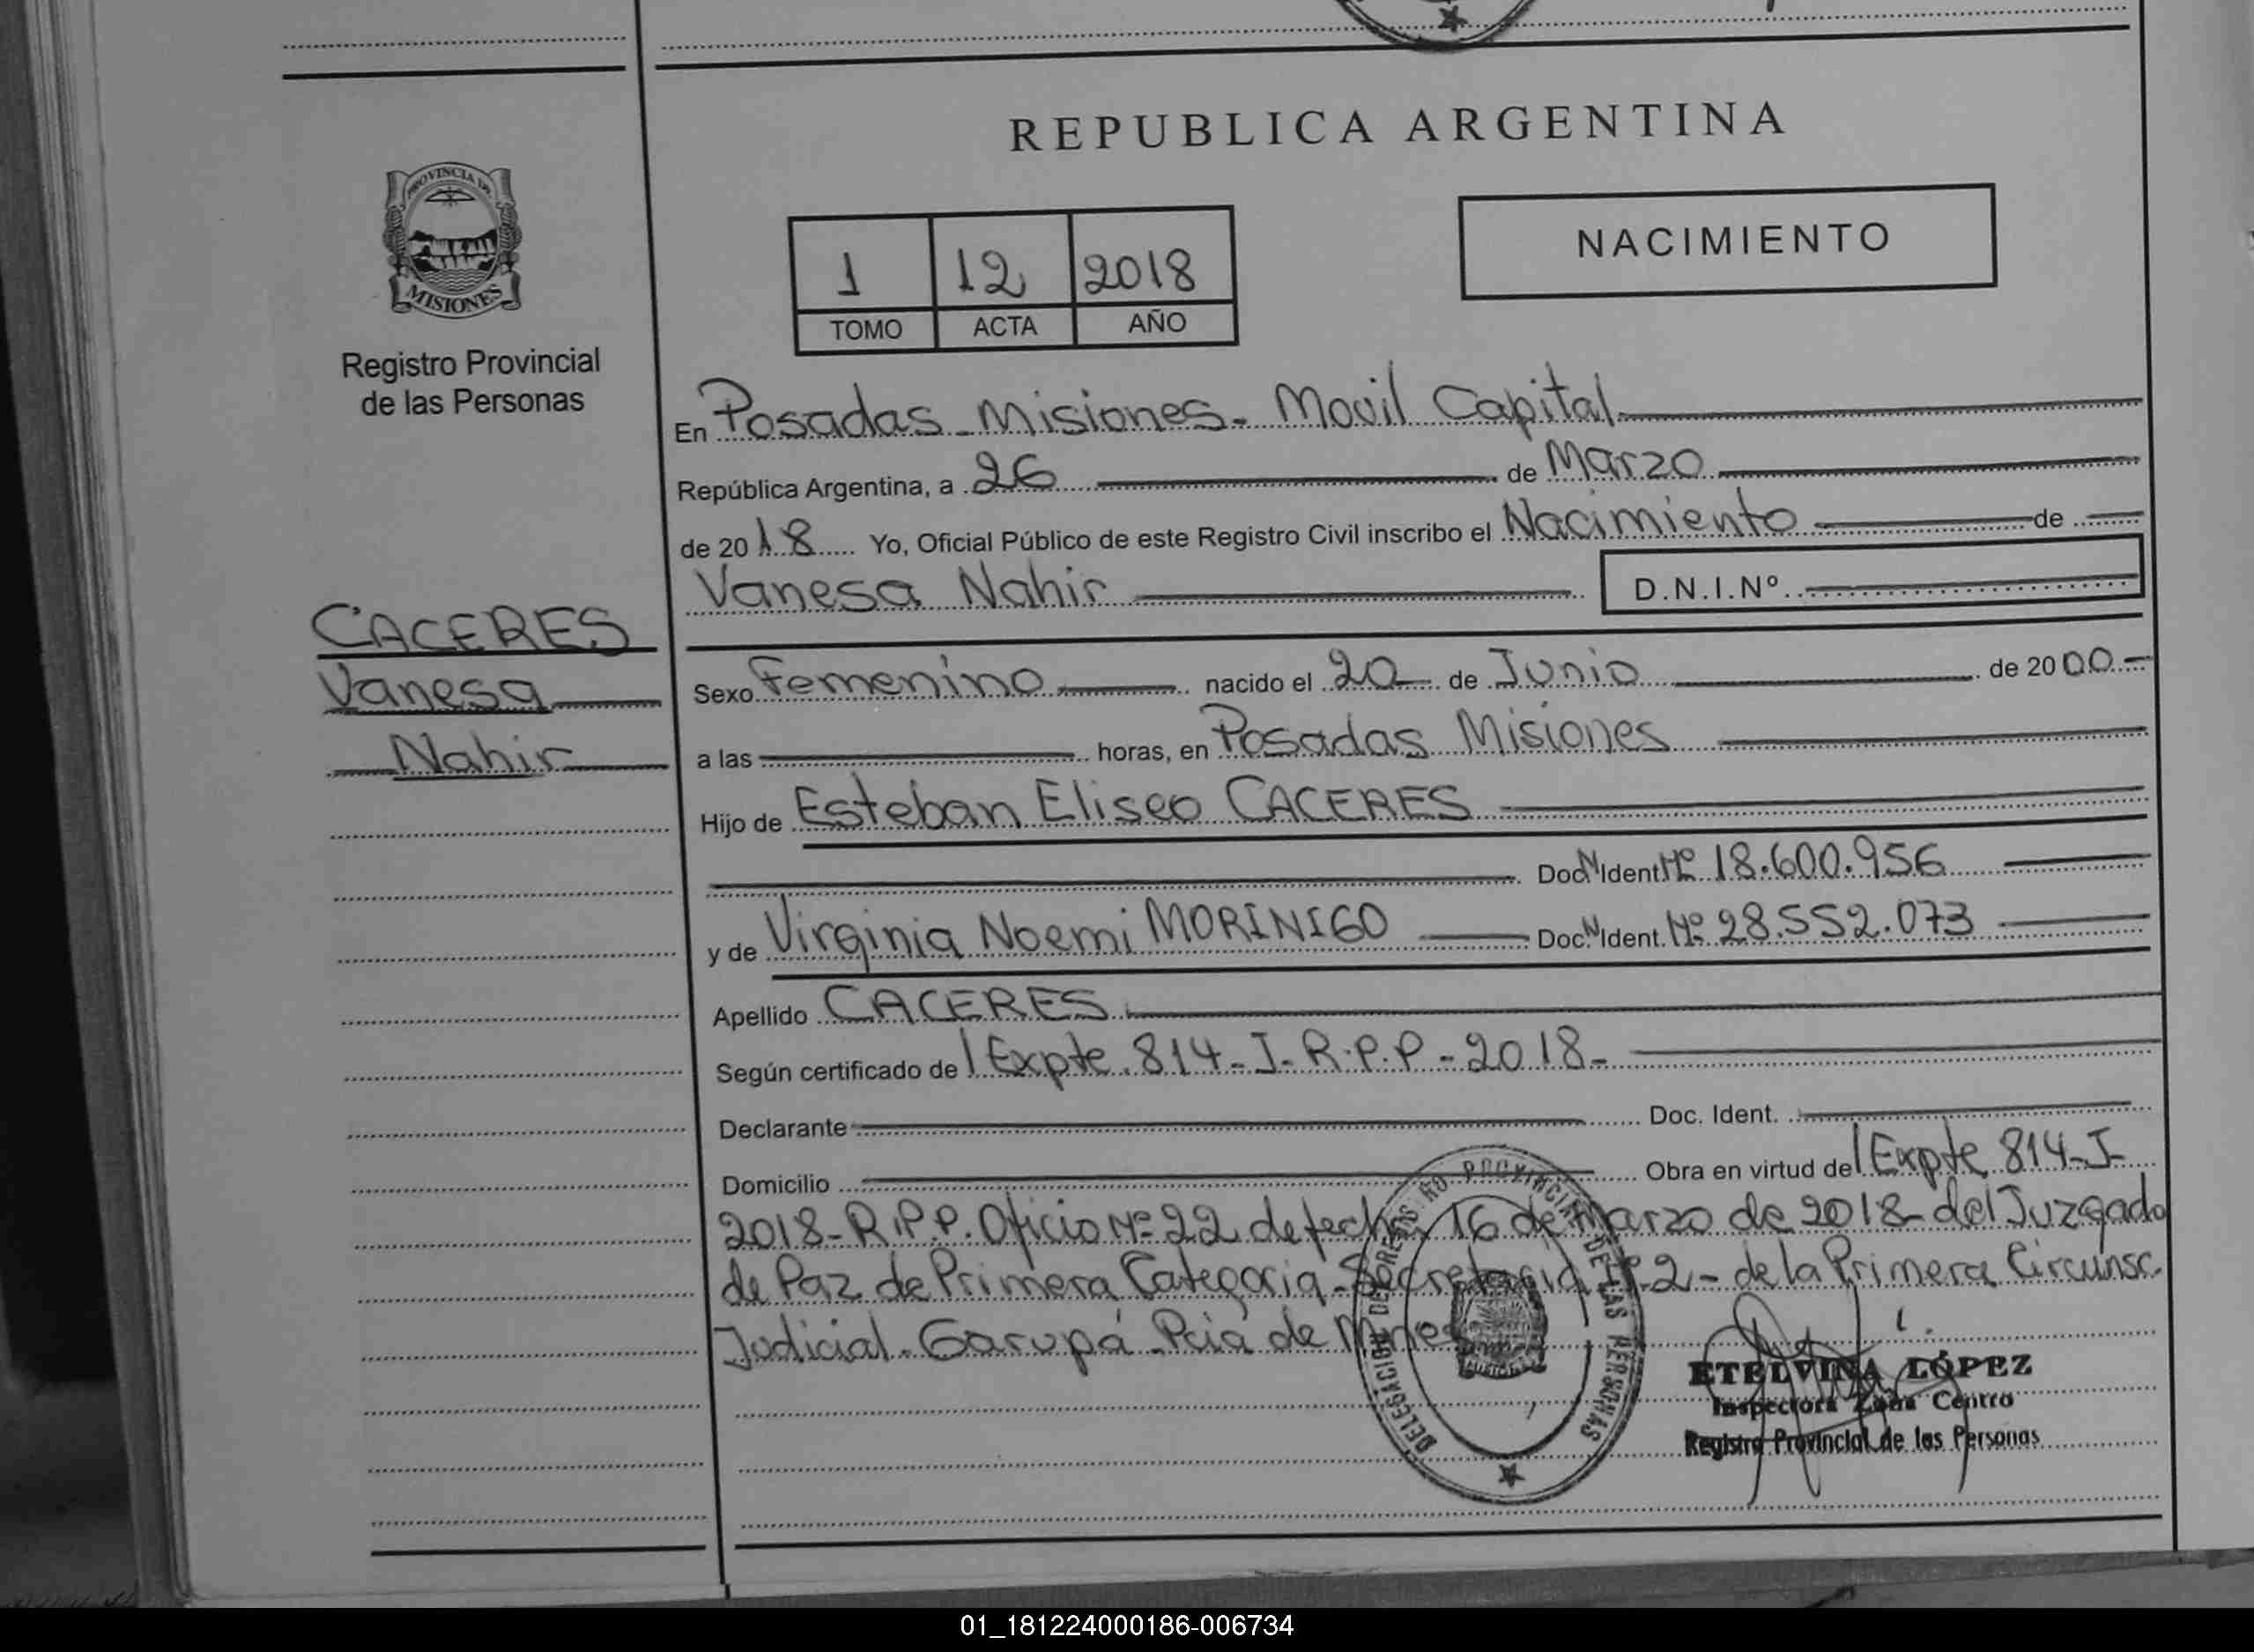 REPUBLICA ARGENTINA
PROVINCIA DE
MISIONES
Registro Provincial
de las Personas
1 12 2018
TOMO ACTA AÑO
NACIMIENTO
En Posadas - Misiones - Movil Capital
República Argentina, a 26 de Marzo
de 2018 Yo, Oficial Público de este Registro Civil inscribo el Nacimiento de
Vanesa Nahir D.N.I.Nº
CACERES
Vanesa
Nahir
Sexo Femenino nacido el 20 de Junio de 2000
a las horas, en Posadas Misiones
Hijo de Esteban Eliseo CACERES
Doc. N. Ident. Nº 18.600.956
y de Virginia Noemi MORINIGO Doc. N. Ident. Nº 28.552.073
Apellido CACERES
Según certificado de Expte. 814-J-R.P.P-2018-
Declarante Doc. Ident.
Domicilio Obra en virtud de Expte 814-J-
2018-R.P.P. Oficio Nº 22 de fecha 16 de Marzo de 2018 del Juzgado
de Paz de Primera Categoria - Secretaria Nº 2 - de la Primera Circunsc.
Judicial - Garupá - Pcia de Mnes
DELEGACION DE REGISTRO PROVINCIAL DE LAS PERSONAS
ETELVINA LÓPEZ
Inspectora Zona Centro
Registro Provincial de las Personas
01_181224000186-006734